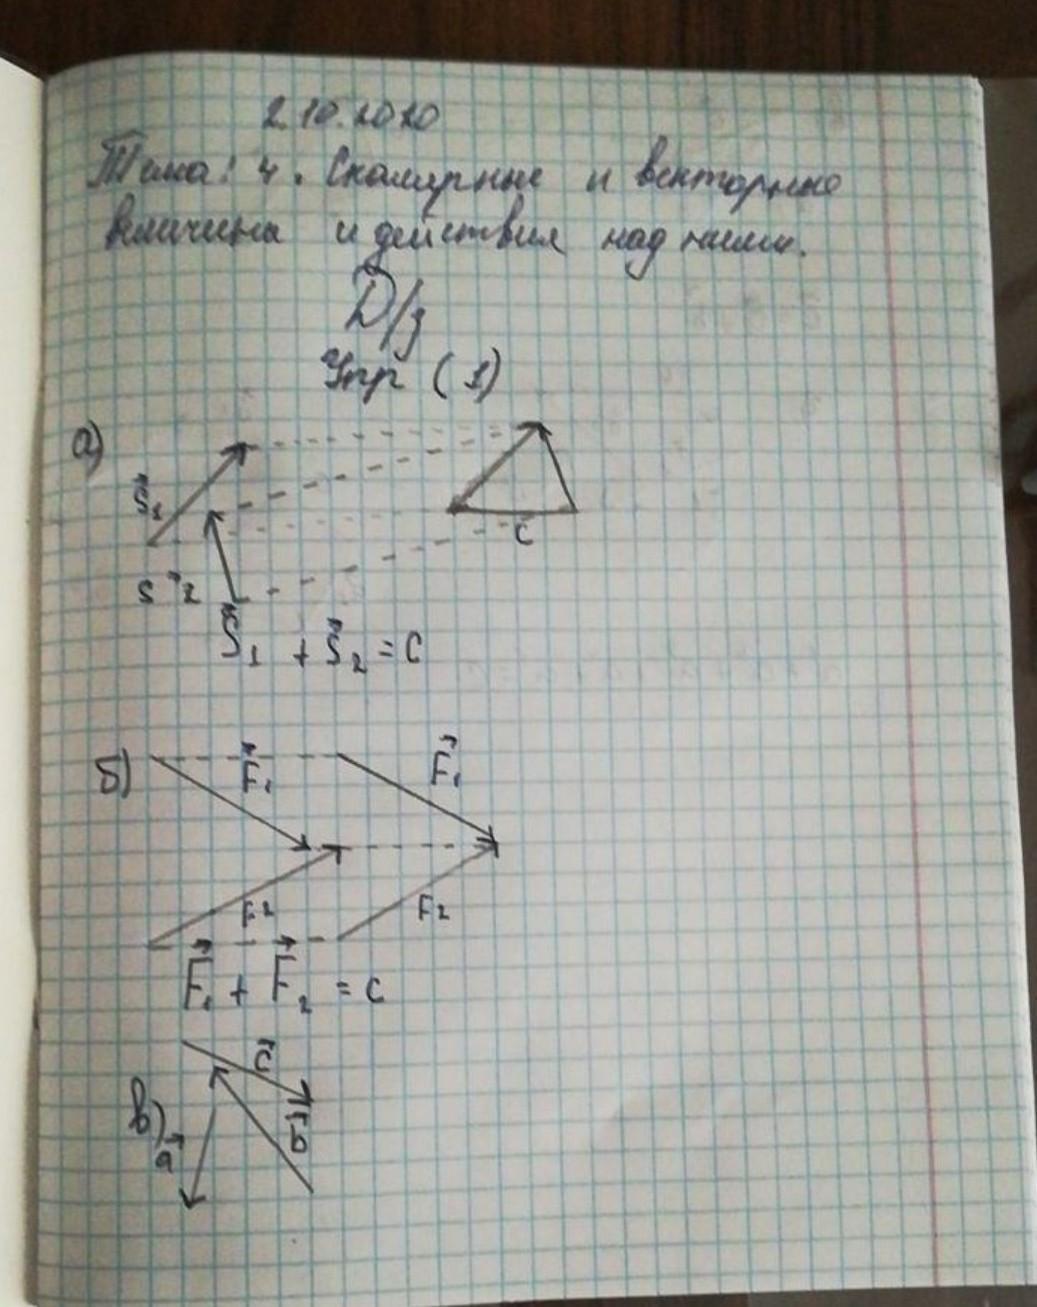 2.10.2020
Тема: 4. Скалярные и векторные
величины и действия над ними.
Д/з
Упр (1)
а)
S₁
S₂
C
S₁ + S₂ = C
б)
F₁
F₁
F₂
F₂
F₁ + F₂ = C
в)
c
a
b